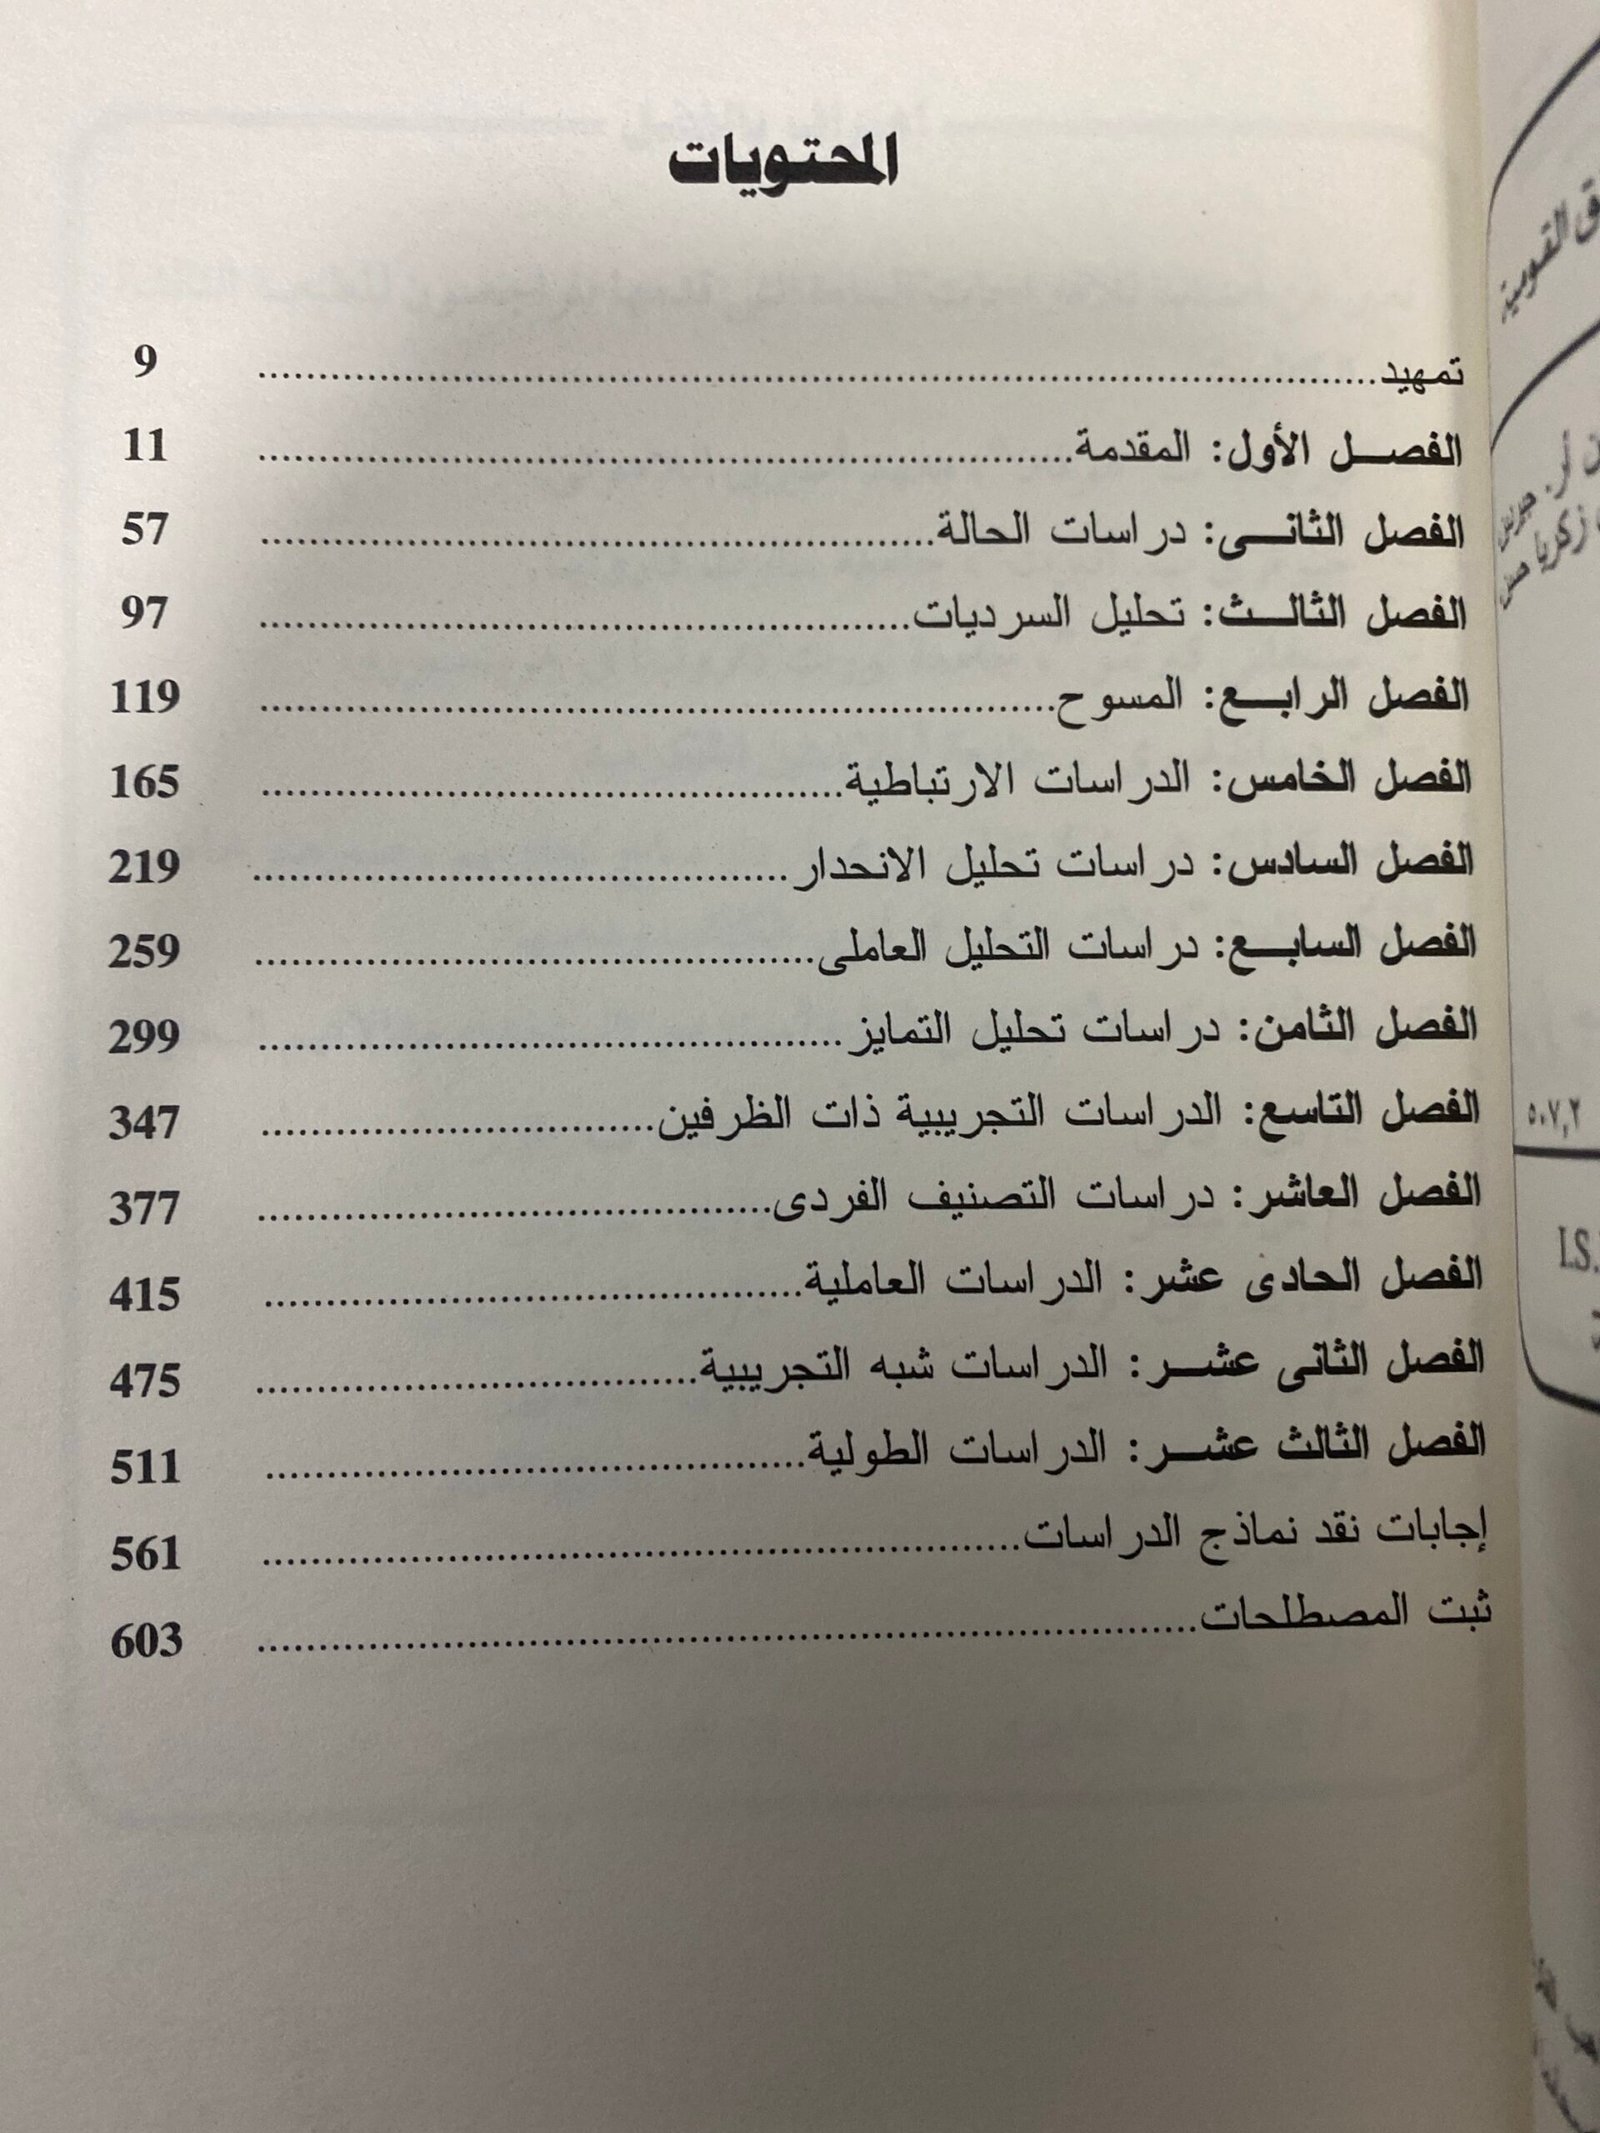 المحتويات
تمهيد........................................ 9
الفصل الأول: المقدمة........................................ 11
الفصل الثانى: دراسات الحالة........................................ 57
الفصل الثالث: تحليل السرديات........................................ 97
الفصل الرابع: المسوح........................................ 119
الفصل الخامس: الدراسات الارتباطية........................................ 165
الفصل السادس: دراسات تحليل الانحدار........................................ 219
الفصل السابع: دراسات التحليل العاملى........................................ 259
الفصل الثامن: دراسات تحليل التمايز........................................ 299
الفصل التاسع: الدراسات التجريبية ذات الظرفين........................................ 347
الفصل العاشر: دراسات التصنيف الفردى........................................ 377
الفصل الحادى عشر: الدراسات العاملية........................................ 415
الفصل الثانى عشر: الدراسات شبه التجريبية........................................ 475
الفصل الثالث عشر: الدراسات الطولية........................................ 511
إجابات نقد نماذج الدراسات........................................ 561
ثبت المصطلحات........................................ 603
القومية
زكريا
٥٠٧,٢
I.S.